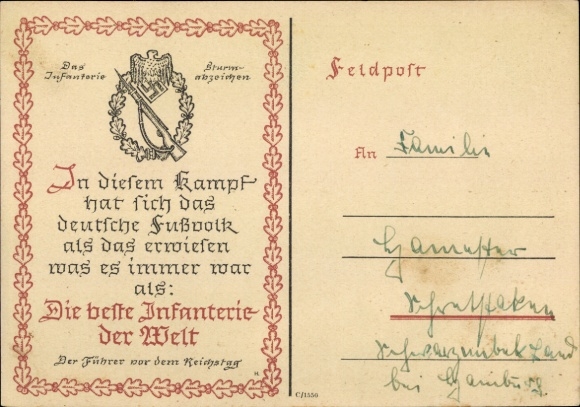 Das
Infanterie
Sturm-
abzeichen
In diesem Kampf
hat sich das
deutsche Fußvolk
als das erwiesen
was es immer war
als:
Die beste Infanterie
der Welt
Der Führer vor dem Reichstag
Feldpost
An Familie
Schwarzenbek Land
bei Hamburg
C/1550